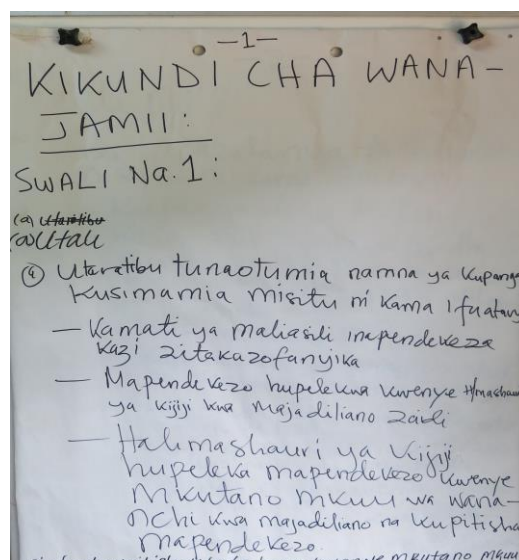 —1—
KIKUNDI CHA WANA-
JAMII:
SWALI Na. 1:
(a) Utaratibu
(a) Utali
(a) Utaratibu tunaotumia namna ya kupanga
kusimamia misitu ni kama ifuatav
— Kamati ya maliasili inapendekeza
kazi zitakazofanyika
— Mapendekezo hupelekwa kwenye H/mashau
ya kijiji kwa majadiliano zaidi
— Halimashauri ya Kijiji
hupeleka mapendekezo kwenye
mkutano mkuu wa wana-
nchi kwa majadiliano na kupitisha
mapendekezo.
mkutano mkuu